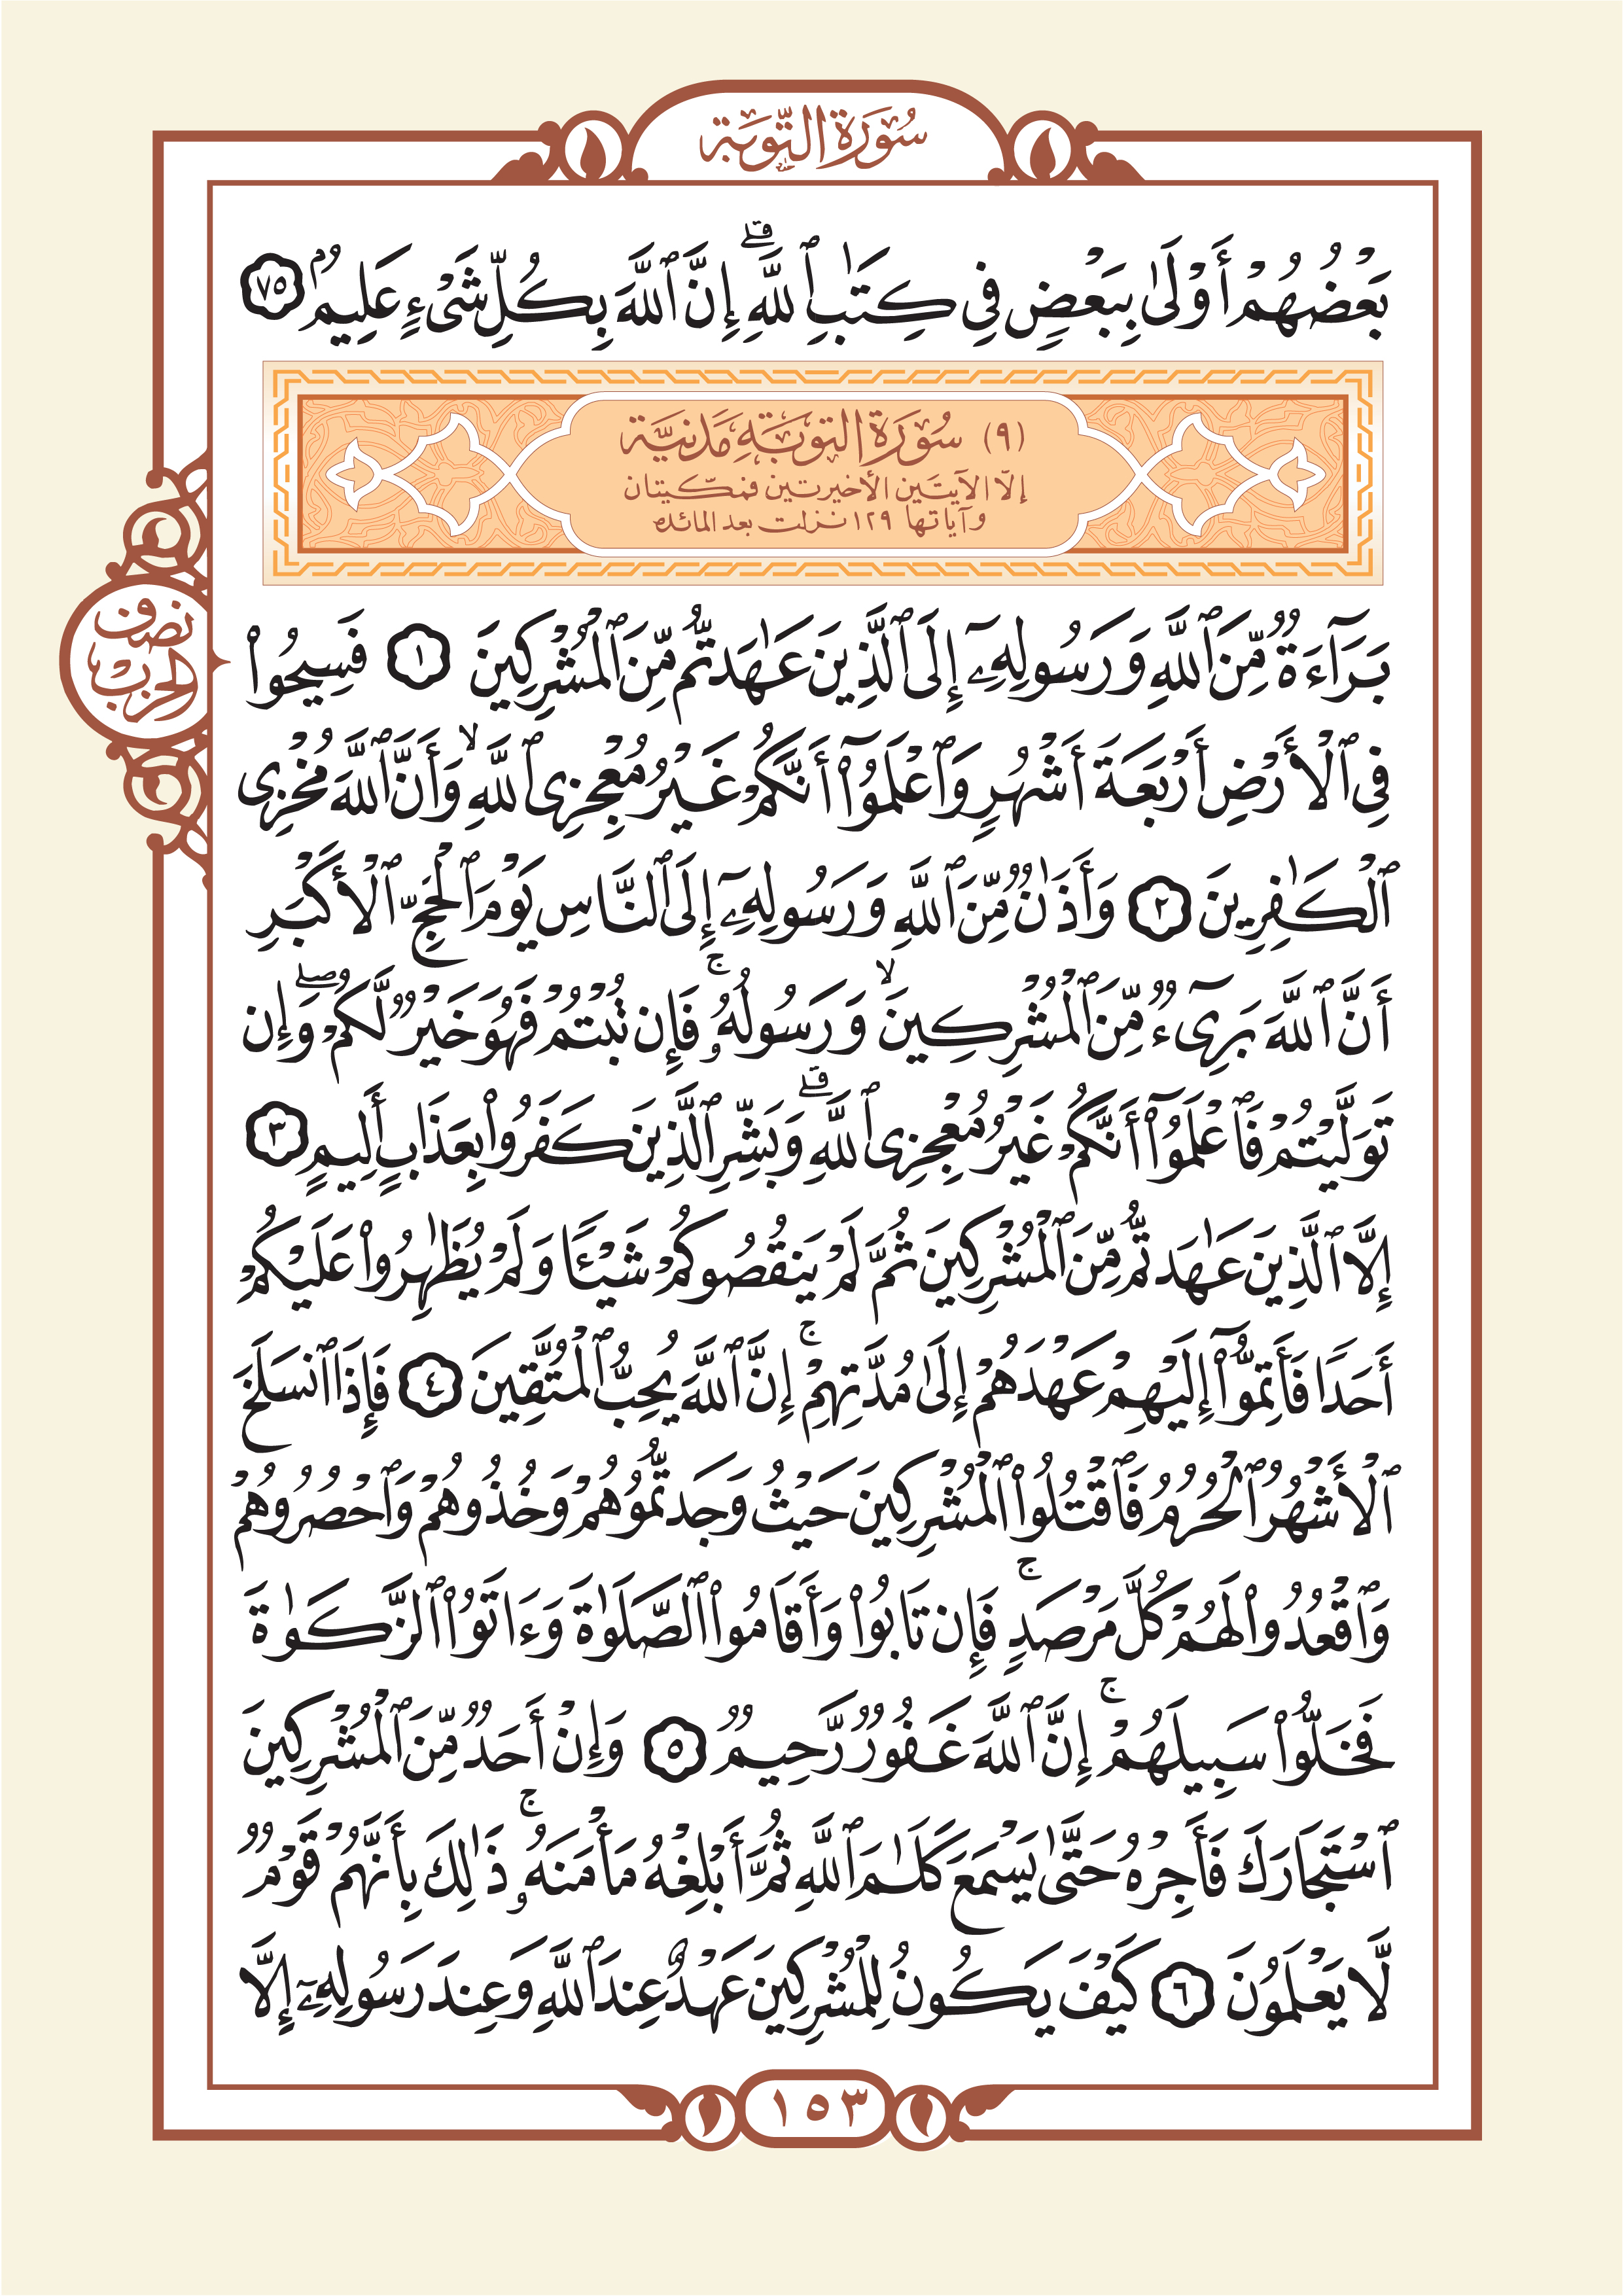 سُورَةُ التَّوبَة
بَعۡضُهُمۡ أَوۡلَىٰ بِبَعۡضٖ فِي كِتَٰبِ ٱللَّهِۗ إِنَّ ٱللَّهَ بِكُلِّ شَيۡءٍ عَلِيمُۢ ٧٥
(٩) سُورَةُ التوبَةِ مَدَنِيَّة
إلّا الآيتَين الأخيرتين فمكيتان
وآياتها ١٢٩ نزلت بعد المائدة
بَرَآءَةٞ مِّنَ ٱللَّهِ وَرَسُولِهِۦٓ إِلَى ٱلَّذِينَ عَٰهَدتُّم مِّنَ ٱلۡمُشۡرِكِينَ ١ فَسِيحُواْ
نصف
الحزب
فِي ٱلۡأَرۡضِ أَرۡبَعَةَ أَشۡهُرٖ وَٱعۡلَمُوٓاْ أَنَّكُمۡ غَيۡرُ مُعۡجِزِي ٱللَّهِ ۙ وَأَنَّ ٱللَّهَ مُخۡزِي
ٱلۡكَٰفِرِينَ ٢ وَأَذَٰنٞ مِّنَ ٱللَّهِ وَرَسُولِهِۦٓ إِلَى ٱلنَّاسِ يَوۡمَ ٱلۡحَجِّ ٱلۡأَكۡبَرِ
أَنَّ ٱللَّهَ بَرِيٓءٞ مِّنَ ٱلۡمُشۡرِكِينَ ۙ وَرَسُولُهُۥۚ فَإِن تُبۡتُمۡ فَهُوَ خَيۡرٞ لَّكُمۡۖ وَإِن
تَوَلَّيۡتُمۡ فَٱعۡلَمُوٓاْ أَنَّكُمۡ غَيۡرُ مُعۡجِزِي ٱللَّهِۗ وَبَشِّرِ ٱلَّذِينَ كَفَرُواْ بِعَذَابٍ أَلِيمٍ ٣
إِلَّا ٱلَّذِينَ عَٰهَدتُّم مِّنَ ٱلۡمُشۡرِكِينَ ثُمَّ لَمۡ يَنقُصُوكُمۡ شَيۡـٔٗا وَلَمۡ يُظَٰهِرُواْ عَلَيۡكُمۡ
أَحَدٗا فَأَتِمُّوٓاْ إِلَيۡهِمۡ عَهۡدَهُمۡ إِلَىٰ مُدَّتِهِمۡۚ إِنَّ ٱللَّهَ يُحِبُّ ٱلۡمُتَّقِينَ ٤ فَإِذَا ٱنسَلَخَ
ٱلۡأَشۡهُرُ ٱلۡحُرُمُ فَٱقۡتُلُواْ ٱلۡمُشۡرِكِينَ حَيۡثُ وَجَدتُّمُوهُمۡ وَخُذُوهُمۡ وَٱحۡصُرُوهُمۡ
وَٱقۡعُدُواْ لَهُمۡ كُلَّ مَرۡصَدٖۚ فَإِن تَابُواْ وَأَقَامُواْ ٱلصَّلَوٰةَ وَءَاتَوُاْ ٱلزَّكَوٰةَ
فَخَلُّواْ سَبِيلَهُمۡۚ إِنَّ ٱللَّهَ غَفُورٞ رَّحِيمٞ ٥ وَإِنۡ أَحَدٞ مِّنَ ٱلۡمُشۡرِكِينَ
ٱسۡتَجَارَكَ فَأَجِرۡهُ حَتَّىٰ يَسۡمَعَ كَلَٰمَ ٱللَّهِ ثُمَّ أَبۡلِغۡهُ مَأۡمَنَهُۥۚ ذَٰلِكَ بِأَنَّهُمۡ قَوۡمٞ
لَّا يَعۡلَمُونَ ٦ كَيۡفَ يَكُونُ لِلۡمُشۡرِكِينَ عَهۡدٌ عِندَ ٱللَّهِ وَعِندَ رَسُولِهِۦٓ إِلَّا
١٥٣